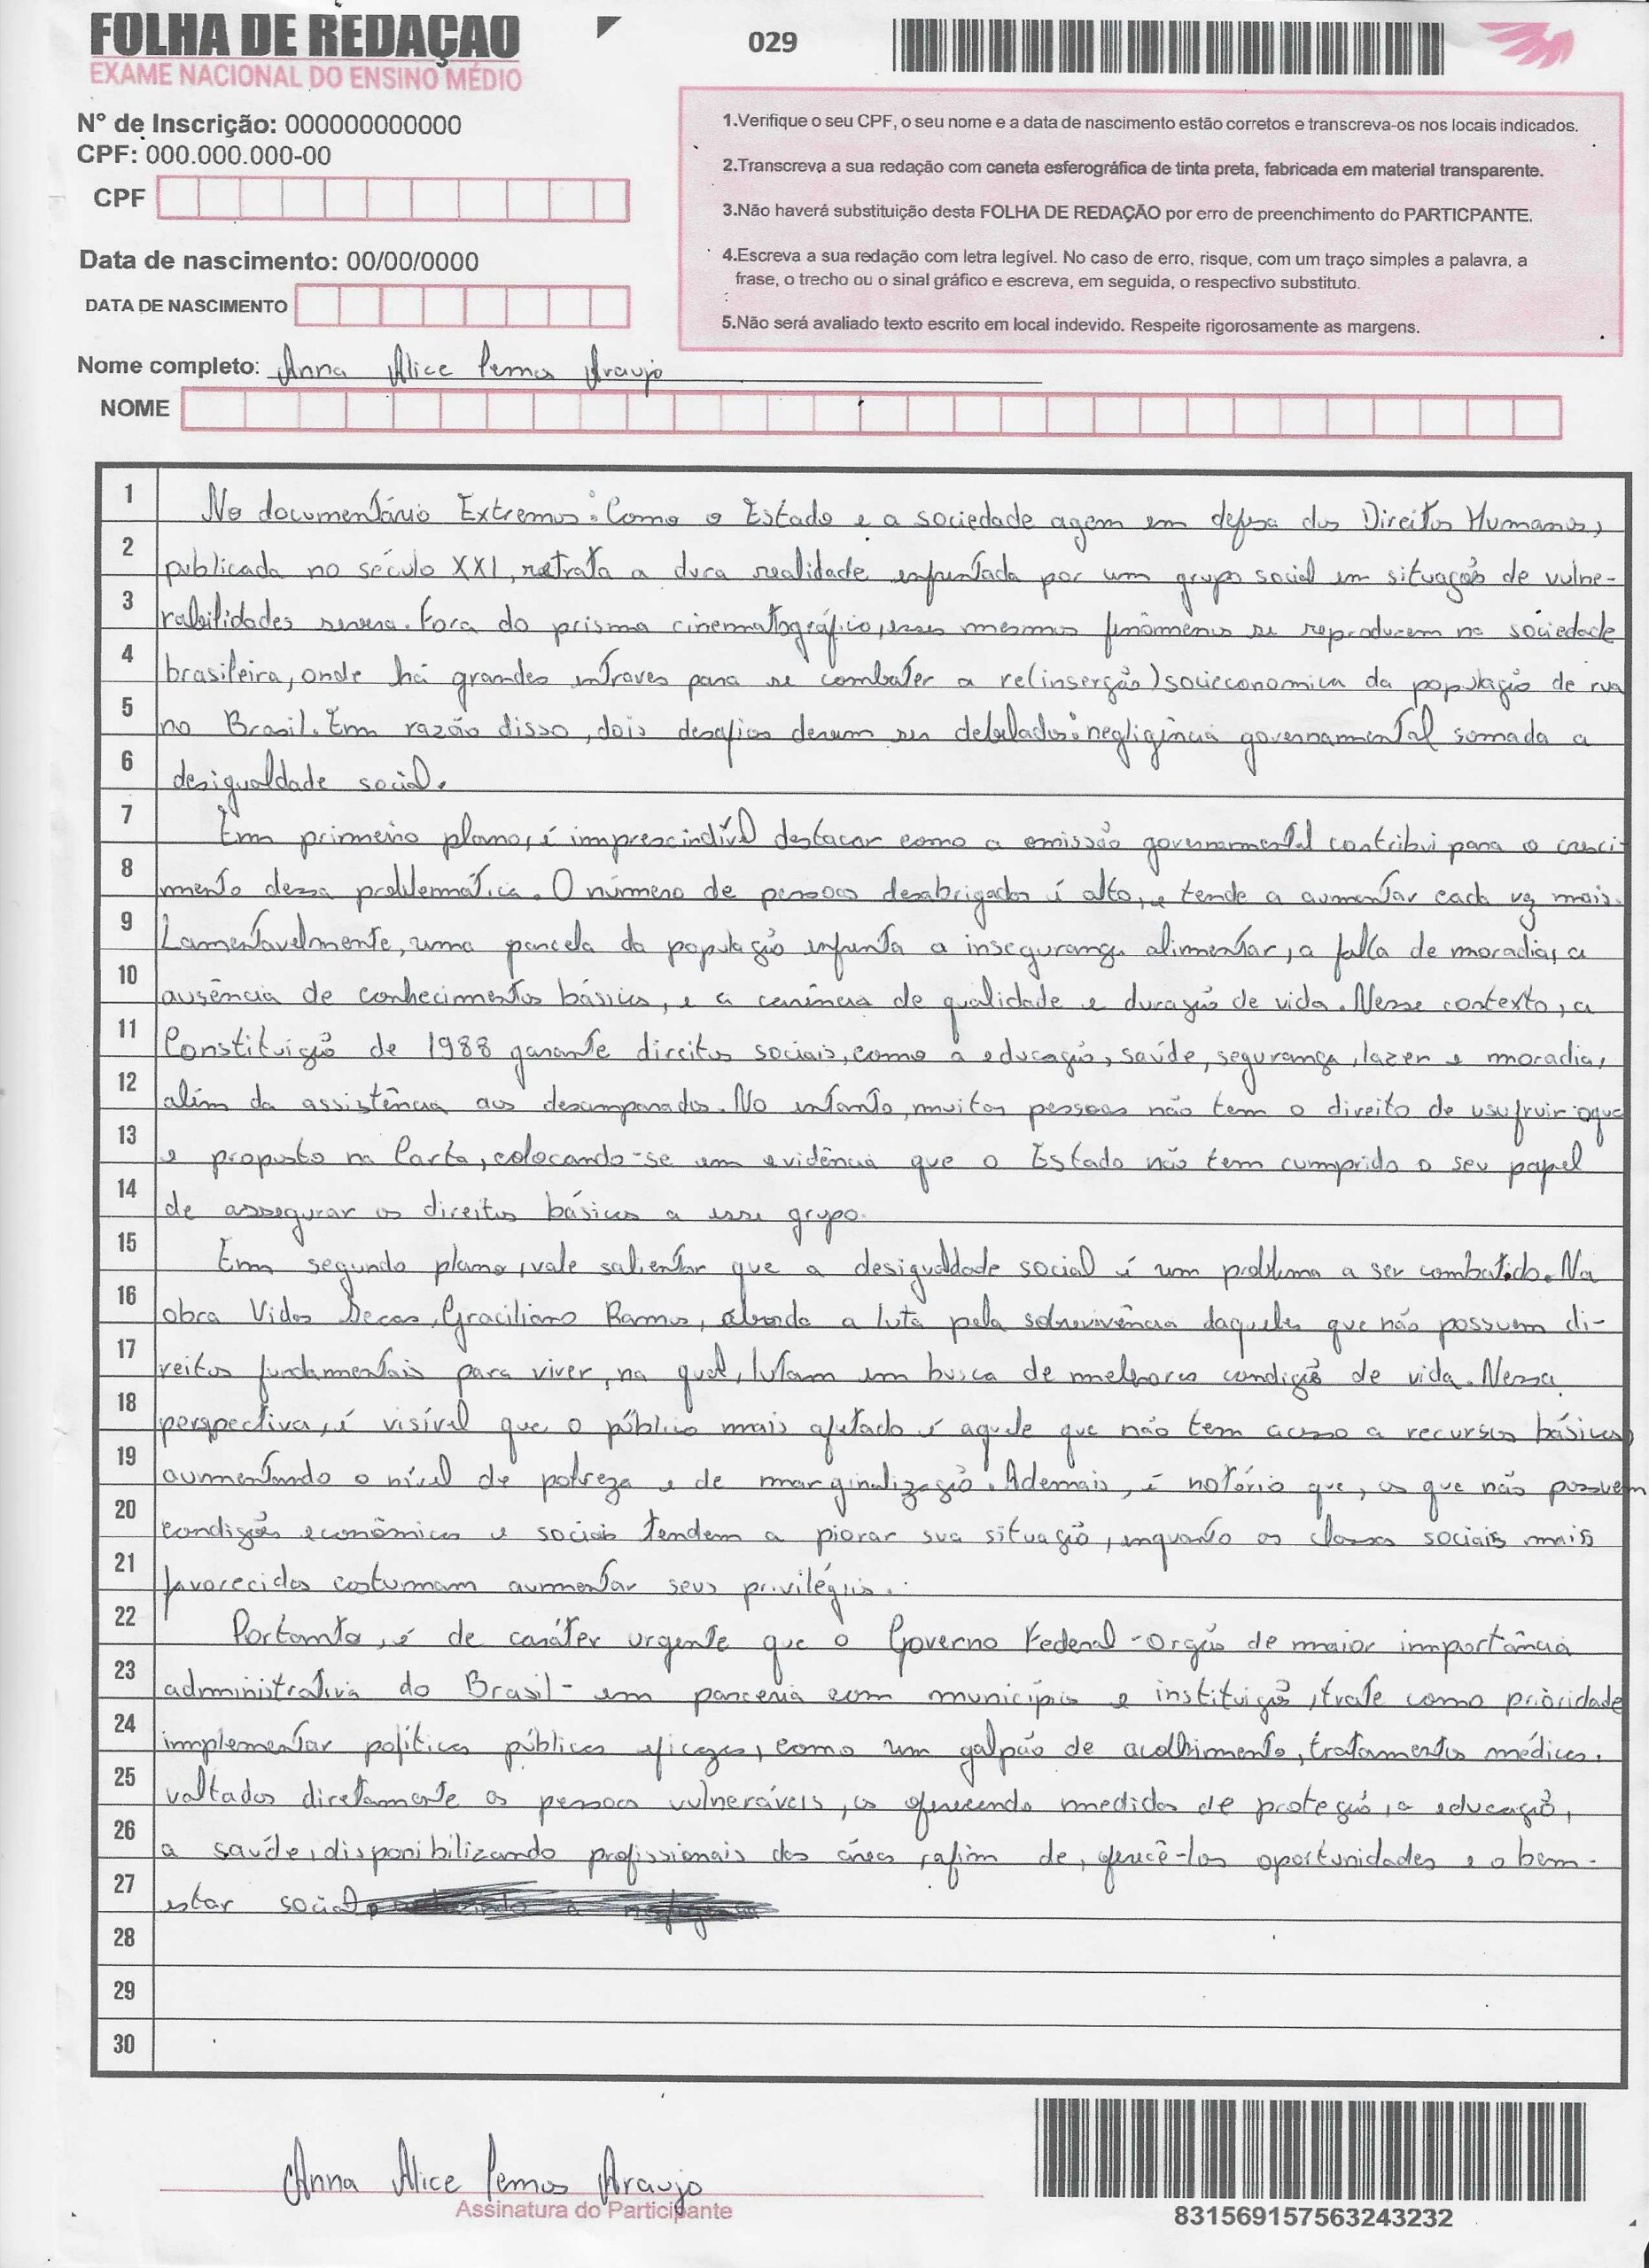 FOLHA DE REDAÇAO
EXAME NACIONAL DO ENSINO MÉDIO
029
N° de Inscrição: 000000000000
CPF: 000.000.000-00
CPF
Data de nascimento: 00/00/0000
DATA DE NASCIMENTO
1.Verifique o seu CPF, o seu nome e a data de nascimento estão corretos e transcreva-os nos locais indicados.
2.Transcreva a sua redação com caneta esferográfica de tinta preta, fabricada em material transparente.
3.Não haverá substituição desta FOLHA DE REDAÇÃO por erro de preenchimento do PARTICPANTE.
4.Escreva a sua redação com letra legível. No caso de erro, risque, com um traço simples a palavra, a
frase, o trecho ou o sinal gráfico e escreva, em seguida, o respectivo substituto.
5.Não será avaliado texto escrito em local indevido. Respeite rigorosamente as margens.
Nome completo: Anna Alice Lemos Araujo
NOME
1 No documentário Extremos: Como o Estado e a sociedade agem em defesa dos Direitos Humanos,
2 publicada no século XXI, retrata a dura realidade enfrentada por um grupo social em situação de vulne-
3 rabilidades severa. Fora do prisma cinematográfico, esses mesmos fenômenos se reproducem na sociedade
4 brasileira, onde há grandes entraves para se combater a re(inserção) socieconomica da população de rua
5 no Brasil. Em razão disso, dois desafios devem ser debelados: negligência governamental somada a
6 desigualdade social.
7 Em primeiro plano, é imprescindível destacar como a omissão governamental contribui para o cresci-
8 mento dessa problemática. O número de pessoas desabrigados é alto, e tende a aumentar cada vez mais.
9 Lamentavelmente, uma parcela da população enfrenta a insegurança alimentar, a falta de moradia, a
10 ausência de conhecimentos básicos, e a carência de qualidade e duração de vida. Nesse contexto, a
11 Constituição de 1988 garante direitos sociais, como a educação, saúde, segurança, lazer e moradia,
12 além da assistência aos desamparados. No entanto, muitas pessoas não tem o direito de usufruir oque
13 e proposto na Carta, colocando-se em evidência que o Estado não tem cumprido o seu papel
14 de assegurar os direitos básicos a esse grupo.
15 Em segundo plano, vale salientar que a desigualdade social é um problema a ser combatido. Na
16 obra Vidas Secas, Graciliano Ramos, aborda a luta pela sobrevivência daqueles que não possuem di-
17 reitos fundamentais para viver, na qual, lutam em busca de melhores condição de vida. Nessa
18 perspectiva, é visível que o público mais afetado é aquele que não tem acesso a recursos básicos,
19 aumentando o nível de pobreza e de marginalização. Ademais, é notório que, os que não possuem
20 condições econômicas e sociais tendem a piorar sua situação, enquanto as classes sociais mais
21 favorecidas costumam aumentar seus privilégios.
22 Portanto, é de caráter urgente que o Governo Federal -orgão de maior importância
23 administrativa do Brasil- em parceria com municípios e instituição, trate como prioridade
24 implementar políticas públicas eficazes, como um galpão de acolhimento, tratamentos médicos.
25 voltados diretamente as pessoas vulneráveis, as oferecendo medidas de proteção, a educação,
26 a saúde, disponibilizando profissionais das áreas, afim de, oferecê-los oportunidades e o bem-
27 estar social
28
29
30
Anna Alice Lemos Araujo
Assinatura do Participante
831569157563243232